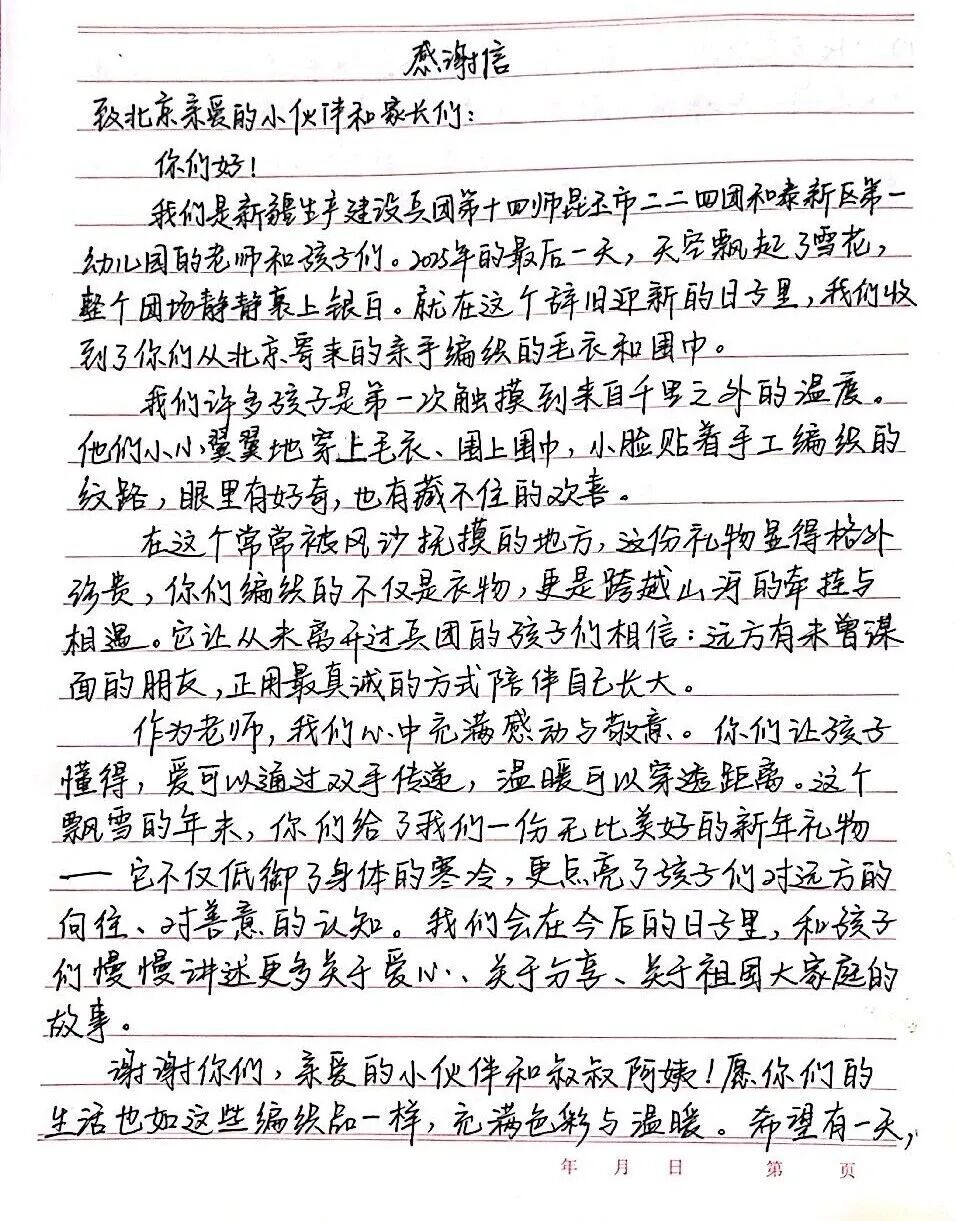 感谢信
致北京亲爱的小伙伴和家长们：
你们好！
我们是新疆生产建设兵团第十四师昆玉市二二四团和泰新区第一
幼儿园的老师和孩子们。2025年的最后一天，天空飘起了雪花，
整个团场静静裹上银白。就在这个辞旧迎新的日子里，我们收
到了你们从北京寄来的亲手编织的毛衣和围巾。
我们许多孩子是第一次触摸到来自千里之外的温度。
他们小心翼翼地穿上毛衣、围上围巾，小脸贴着手工编织的
纹路，眼里有好奇，也有藏不住的欢喜。
在这个常常被风沙抚摸的地方，这份礼物显得格外
珍贵，你们编织的不仅是衣物，更是跨越山河的牵挂与
相遇。它让从未离开过兵团的孩子们相信：远方有未曾谋
面的朋友，正用最真诚的方式陪伴自己长大。
作为老师，我们心中充满感动与敬意。你们让孩子
懂得，爱可以通过双手传递，温暖可以穿透距离。这个
飘雪的年末，你们给了我们一份无比美好的新年礼物
——它不仅低御了身体的寒冷，更点亮了孩子们对远方的
向往、对善意的认知。我们会在今后的日子里，和孩子
们慢慢讲述更多关于爱心、关于分享、关于祖国大家庭的
故事。
谢谢你们，亲爱的小伙伴和叔叔阿姨！愿你们的
生活也如这些编织品一样，充满色彩与温暖。希望有一天，
年 月 日 第 页